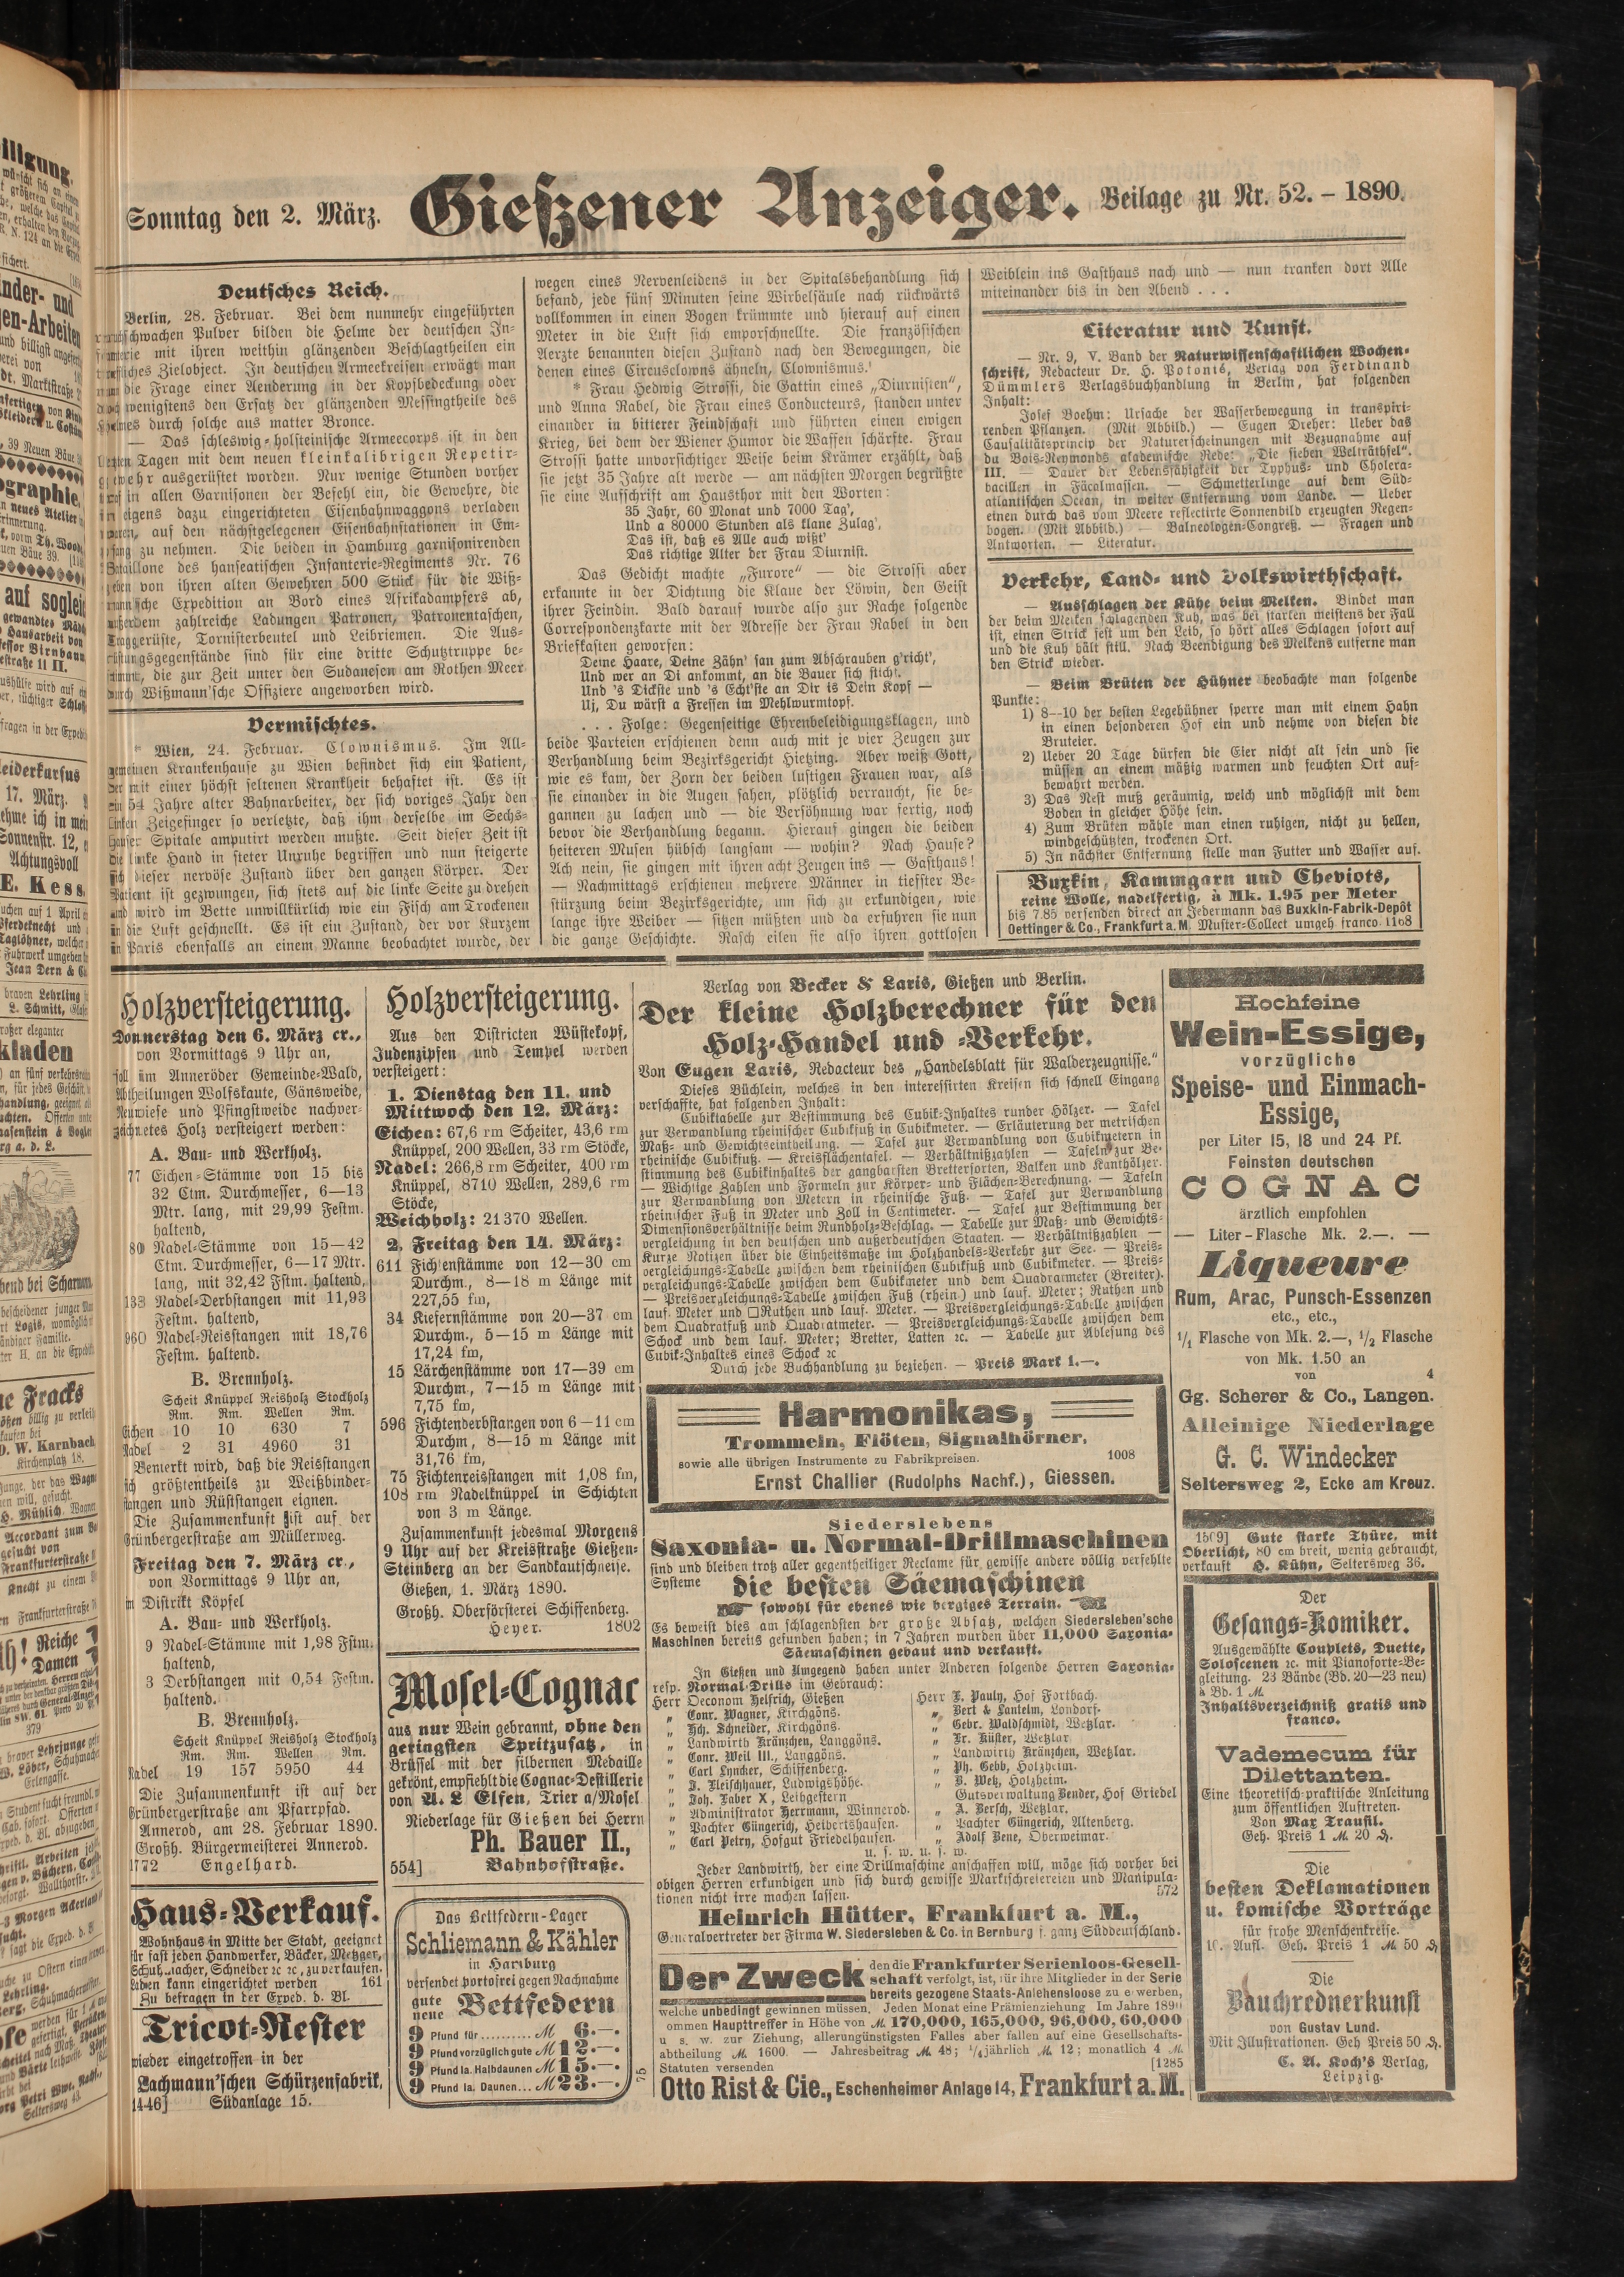 Sonntag den 2. März.
Gießener Anzeiger.
Beilage zu Nr. 52. – 1890.
Deutsches Reich.
Berlin, 28. Februar. Bei dem nunmehr eingeführten
rauchschwachen Pulver bilden die Helme der deutschen In-
fanterie mit ihren weithin glänzenden Beschlagtheilen ein
treffliches Zielobject. In deutschen Armeekreisen erwägt man
nun die Frage einer Aenderung in der Kopfbedeckung oder
doch wenigstens den Ersatz der glänzenden Messingtheile des
Helmes durch solche aus matter Bronce.
— Das schleswig-holsteinische Armeecorps ist in den
letzten Tagen mit dem neuen kleinkalibrigen Repetir-
gewehr ausgerüstet worden. Nur wenige Stunden vorher
traf in allen Garnisonen der Befehl ein, die Gewehre, die
in eigens dazu eingerichteten Eisenbahnwaggons verladen
waren, auf den nächstgelegenen Eisenbahnstationen in Em-
pfang zu nehmen. Die beiden in Hamburg garnisonirenden
Bataillone des hanseatischen Infanterie-Regiments Nr. 76
geben von ihren alten Gewehren 500 Stück für die Wiß-
mann'sche Expedition an Bord eines Afrikadampfers ab,
außerdem zahlreiche Ladungen Patronen, Patronentaschen,
Traggerüste, Tornisterbeutel und Leibriemen. Die Aus-
rüstungsgegenstände sind für eine dritte Schutztruppe be-
stimmt, die zur Zeit unter den Sudanesen am Rothen Meer
durch Wißmann'sche Offiziere angeworben wird.
Vermischtes.
* Wien, 24. Februar. Clownismus. Im All-
gemeinen Krankenhause zu Wien befindet sich ein Patient,
der mit einer höchst seltenen Krankheit behaftet ist. Es ist
ein 54 Jahre alter Bahnarbeiter, der sich voriges Jahr den
linken Zeigefinger so verletzte, daß ihm derselbe im Sechs-
hauser Spitale amputirt werden mußte. Seit dieser Zeit ist
die linke Hand in steter Unruhe begriffen und nun steigerte
sich dieser nervöse Zustand über den ganzen Körper. Der
Patient ist gezwungen, sich stets auf die linke Seite zu drehen
und wird im Bette unwillkürlich wie ein Fisch am Trockenen
in die Luft geschnellt. Es ist ein Zustand, der vor Kurzem
in Paris ebenfalls an einem Manne beobachtet wurde, der
wegen eines Nervenleidens in der Spitalsbehandlung sich
befand, jede fünf Minuten seine Wirbelsäule nach rückwärts
vollkommen in einen Bogen krümmte und hierauf auf einen
Meter in die Luft sich emporschnellte. Die französischen
Aerzte benannten diesen Zustand nach den Bewegungen, die
denen eines Circusclowns ähneln, Clownismus.
* Frau Hedwig Strossi, die Gattin eines „Diurnisten",
und Anna Rabel, die Frau eines Conducteurs, standen unter
einander in bitterer Feindschaft und führten einen ewigen
Krieg, bei dem der Wiener Humor die Waffen schärfte. Frau
Strossi hatte unvorsichtiger Weise beim Krämer erzählt, daß
sie jetzt 35 Jahre alt werde — am nächsten Morgen begrüßte
sie eine Aufschrift am Hausthor mit den Worten:
35 Jahr, 60 Monat und 7000 Tag',
Und a 80000 Stunden als klane Zulag',
Das ist, daß es Alle auch wißt'
Das richtige Alter der Frau Diurnist.
Das Gedicht machte „Furore" — die Strossi aber
erkannte in der Dichtung die Klaue der Löwin, den Geist
ihrer Feindin. Bald darauf wurde also zur Rache folgende
Correspondenzkarte mit der Adresse der Frau Rabel in den
Briefkasten geworfen:
Deine Haare, Deine Zähn' san zum Abschrauben g'richt',
Und wer an Di ankommt, an die Bauer sich sticht.
Und 's Dickste und 's Echt'ste an Dir is Dein Kopf —
Uj, Du wärst a Fressen im Mehlwurmtopf.
. . Folge: Gegenseitige Ehrenbeleidigungsklagen, und
beide Parteien erschienen denn auch mit je vier Zeugen zur
Verhandlung beim Bezirksgericht Hietzing. Aber weiß Gott,
wie es kam, der Zorn der beiden lustigen Frauen war, als
sie einander in die Augen sahen, plötzlich verraucht, sie be-
gannen zu lachen und — die Versöhnung war fertig, noch
bevor die Verhandlung begann. Hierauf gingen die beiden
heiteren Musen hübsch langsam — wohin? Nach Hause?
Ach nein, sie gingen mit ihren acht Zeugen ins — Gasthaus!
— Nachmittags erschienen mehrere Männer in tiefster Be-
stürzung beim Bezirksgerichte, um sich zu erkundigen, wie
lange ihre Weiber — sitzen müßten und da erfuhren sie nun
die ganze Geschichte. Rasch eilen sie also ihren gottlosen
Weiblein ins Gasthaus nach und — nun tranken dort Alle
miteinander bis in den Abend . . .
Literatur und Kunst.
— Nr. 9, V. Band der Naturwissenschaftlichen Wochen-
schrift, Redacteur Dr. H. Potonié, Verlag von Ferdinand
Dümmlers Verlagsbuchhandlung in Berlin, hat folgenden
Inhalt:
Josef Boehm: Ursache der Wasserbewegung in transpiri-
renden Pflanzen. (Mit Abbild.) — Eugen Dreher: Ueber das
Causalitätsprincip der Naturerscheinungen mit Bezugnahme auf
du Bois-Reymonds akademische Rede: „Die sieben Welträthsel".
III. — Dauer der Lebensfähigkeit der Typhus- und Cholera-
bacillen in Fäcalmassen. — Schmetterlinge auf dem Süd-
atlantischen Ocean, in weiter Entfernung vom Lande. — Ueber
einen durch das vom Meere reflectirte Sonnenbild erzeugten Regen-
bogen. (Mit Abbild.) — Balneologen-Congreß. — Fragen und
Antworten. — Literatur.
Verkehr, Land- und Volkswirthschaft.
— Ausschlagen der Kühe beim Melken. Bindet man
der beim Melken schlagenden Kuh, was bei starken meistens der Fall
ist, einen Strick fest um den Leib, so hört alles Schlagen sofort auf
und die Kuh hält still. Nach Beendigung des Melkens entferne man
den Strick wieder.
— Beim Brüten der Hühner beobachte man folgende
Punkte:
1) 8—10 der besten Legehühner sperre man mit einem Hahn
in einen besonderen Hof ein und nehme von diesen die
Bruteier.
2) Ueber 20 Tage dürfen die Eier nicht alt sein und sie
müssen an einem mäßig warmen und feuchten Ort auf-
bewahrt werden.
3) Das Nest muß geräumig, weich und möglichst mit dem
Boden in gleicher Höhe sein.
4) Zum Brüten wähle man einen ruhigen, nicht zu hellen,
windgeschützten, trockenen Ort.
5) In nächster Entfernung stelle man Futter und Wasser auf.
Buxkin, Kammgarn und Cheviots,
reine Wolle, nadelfertig, à Mk. 1.95 per Meter
bis 7.85 versenden direct an Jedermann das Buxkin-Fabrik-Depôt
Oettinger & Co., Frankfurt a. M. Muster-Collect umgeh franco. 1108
Holzversteigerung.
Donnerstag den 6. März cr.,
von Vormittags 9 Uhr an,
soll im Anneröder Gemeinde-Wald,
Abtheilungen Wolfskaute, Gänsweide,
Neuwiese und Pfingstweide nachver-
zeichnetes Holz versteigert werden:
A. Bau- und Werkholz.
77 Eichen-Stämme von 15 bis
32 Ctm. Durchmesser, 6—13
Mtr. lang, mit 29,99 Festm.
haltend,
80 Nadel-Stämme von 15—42
Ctm. Durchmesser, 6—17 Mtr.
lang, mit 32,42 Fstm. haltend,
133 Nadel-Derbstangen mit 11,93
Festm. haltend,
960 Nadel-Reisstangen mit 18,76
Festm. haltend.
B. Brennholz.
Scheit Knüppel Reisholz Stockholz
Rm. Rm. Wellen Rm.
Eichen 10 10 630 7
Nadel 2 31 4960 31
Bemerkt wird, daß die Reisstangen
sich größtentheils zu Weißbinder-
stangen und Rüststangen eignen.
Die Zusammenkunft ist auf der
Grünbergerstraße am Müllerweg.
Freitag den 7. März cr.,
von Vormittags 9 Uhr an,
in Distrikt Köpfel
A. Bau- und Werkholz.
9 Nadel-Stämme mit 1,98 Fstm.
haltend,
3 Derbstangen mit 0,54 Festm.
haltend.
B. Brennholz.
Scheit Knüppel Reisholz Stockholz
Rm. Rm. Wellen Rm.
Nadel 19 157 5950 44
Die Zusammenkunft ist auf der
Grünbergerstraße am Pfarrpfad.
Annerod, am 28. Februar 1890.
Großh. Bürgermeisterei Annerod.
1772 Engelhard.
Haus-Verkauf.
Wohnhaus in Mitte der Stadt, geeignet
für fast jeden Handwerker, Bäcker, Metzger,
Schuhmacher, Schneider ꝛc ꝛc, zu verkaufen.
Laden kann eingerichtet werden 161
Zu befragen in der Exped. d. Bl.
Tricot-Rester
wieder eingetroffen in der
Lachmann'schen Schürzenfabrik,
1446] Südanlage 15.
Holzversteigerung.
Aus den Districten Wüstekopf,
Judenzipfen und Tempel werden
versteigert:
1. Dienstag den 11. und
Mittwoch den 12. März:
Eichen: 67,6 rm Scheiter, 43,6 rm
Knüppel, 200 Wellen, 33 rm Stöcke,
Nadel: 266,8 rm Scheiter, 400 rm
Knüppel, 8710 Wellen, 289,6 rm
Stöcke,
Weichholz: 21370 Wellen.
2. Freitag den 14. März:
611 Fichtenstämme von 12—30 cm
Durchm., 8—18 m Länge mit
227,55 fm,
34 Kiefernstämme von 20—37 cm
Durchm., 5—15 m Länge mit
17,24 fm,
15 Lärchenstämme von 17—39 cm
Durchm., 7—15 m Länge mit
7,75 fm,
596 Fichtenderbstangen von 6—11 cm
Durchm, 8—15 m Länge mit
31,76 fm,
75 Fichtenreisstangen mit 1,08 fm,
108 rm Nadelknüppel in Schichten
von 3 m Länge.
Zusammenkunft jedesmal Morgens
9 Uhr auf der Kreisstraße Gießen-
Steinberg an der Sandkautschneise.
Gießen, 1. März 1890.
Großh. Oberförsterei Schiffenberg.
Heyer. 1802
Mosel-Cognac
aus nur Wein gebrannt, ohne den
geringsten Spritzusatz, in
Brüssel mit der silbernen Medaille
gekrönt, empfiehlt die Cognac-Destillerie
von A. L Elfen, Trier a/Mosel
Niederlage für Gießen bei Herrn
Ph. Bauer II.,
554] Bahnhofstraße.
Das Bettfedern-Lager
Schliemann & Kähler
in Hamburg
versendet portofrei gegen Nachnahme
gute
neue Bettfedern
9 Pfund für.......... M 6.—.
9 Pfund vorzüglich gute M 12.—.
9 Pfund Ia. Halbdaunen M 15.—.
9 Pfund Ia. Daunen... M 23.—.
75
Verlag von Becker & Laris, Gießen und Berlin.
Der kleine Holzberechner für den
Holz-Handel und -Verkehr.
Von Eugen Laris, Redacteur des „Handelsblatt für Walderzeugnisse."
Dieses Büchlein, welches in den interessirten Kreisen sich schnell Eingang
verschaffte, hat folgenden Inhalt:
Cubiktabelle zur Bestimmung des Cubik-Inhaltes runder Hölzer. — Tafel
zur Verwandlung rheinischer Cubikfuß in Cubikmeter. — Erläuterung der metrischen
Maß- und Gewichtseintheilung. — Tafel zur Verwandlung von Cubikmetern in
rheinische Cubikfuß. — Kreisflächentafel. — Verhältnißzahlen — Tafeln zur Be-
stimmung des Cubikinhaltes der gangbarsten Brettersorten, Balken und Kanthölzer.
— Wichtige Zahlen und Formeln zur Körper- und Flächen-Berechnung. — Tafeln
zur Verwandlung von Metern in rheinische Fuß. — Tafel zur Verwandlung
rheinischer Fuß in Meter und Zoll in Centimeter. — Tafel zur Bestimmung der
Dimensionsverhältnisse beim Rundholz-Beschlag. — Tabelle zur Maß- und Gewichts-
vergleichung in den deutschen und außerdeutschen Staaten. — Verhältnißzahlen —
Kurze Notizen über die Einheitsmaße im Holzhandels-Verkehr zur See. — Preis-
vergleichungs-Tabelle zwischen dem rheinischen Cubikfuß und Cubikmeter. — Preis-
vergleichungs-Tabelle zwischen dem Cubikmeter und dem Quadratmeter (Breiter).
— Preisvergleichungs-Tabelle zwischen Fuß (rhein.) und lauf. Meter; Ruthen und
lauf. Meter und □Ruthen und lauf. Meter. — Preisvergleichungs-Tabelle zwischen
dem Quadratfuß und Quadratmeter. — Preisvergleichungs-Tabelle zwischen dem
Schock und dem lauf. Meter; Bretter, Latten ꝛc. — Tabelle zur Ablesung des
Cubik-Inhaltes eines Schock ꝛc
Durch jede Buchhandlung zu beziehen. — Preis Mark 1.—.
Harmonikas,
Trommeln, Flöten, Signalhörner,
sowie alle übrigen Instrumente zu Fabrikpreisen. 1008
Ernst Challier (Rudolphs Nachf.), Giessen.
Siederslebens
Saxonia- u. Normal-Drillmaschinen
sind und bleiben trotz aller gegentheiliger Reclame für gewisse andere völlig verfehlte
Systeme die besten Säemaschinen
sowohl für ebenes wie bergiges Terrain.
Es beweist dies am schlagendsten der große Absatz, welchen Siedersleben'sche
Maschinen bereits gefunden haben; in 7 Jahren wurden über 11,000 Saxonia-
Säemaschinen gebaut und verkauft.
In Gießen und Umgegend haben unter Anderen folgende Herren Saxonia-
resp. Normal-Drills im Gebrauch:
Herr Oeconom Helfrich, Gießen
„ Conr. Wagner, Kirchgöns.
„ Hch. Schneider, Kirchgöns.
„ Landwirth Kränzchen, Langgöns.
„ Conr. Weil III., Langgöns.
„ Carl Lyncker, Schiffenberg.
„ J. Fleischhauer, Ludwigshöhe.
„ Joh. Faber X, Leihgestern
„ Administrator Herrmann, Winnerod.
„ Pachter Güngerich, Heibertshausen.
„ Carl Petry, Hofgut Friedelhausen.
Herr F. Pauly, Hof Fortbach.
„ Bert & Lantelm, Londorf.
„ Gebr. Waldschmidt, Wetzlar.
„ Fr. Küster, Wetzlar
„ Landwirth Kränzchen, Wetzlar.
„ Ph. Gebb, Holzheim.
„ B. Metz, Holzheim.
Gutsverwaltung Bender, Hof Griedel
„ A. Bersch, Wetzlar.
„ Pachter Güngerich, Altenberg.
„ Adolf Bene, Oberweimar.
u. s. w. u. s. w.
Jeder Landwirth, der eine Drillmaschine anschaffen will, möge sich vorher bei
obigen Herren erkundigen und sich durch gewisse Marktschreiereien und Manipula-
tionen nicht irre machen lassen. 572
Heinrich Hütter, Frankfurt a. M.,
Generalvertreter der Firma W. Siedersleben & Co. in Bernburg f. ganz Süddeutschland.
Der Zweck den die Frankfurter Serienloos-Gesell-
schaft verfolgt, ist, für ihre Mitglieder in der Serie
bereits gezogene Staats-Anlehensloose zu erwerben,
welche unbedingt gewinnen müssen. Jeden Monat eine Prämienziehung Im Jahre 1890
ommen Haupttreffer in Höhe von M. 170,000, 165,000, 96,000, 60,000
u s. w. zur Ziehung, allerungünstigsten Falles aber fallen auf eine Gesellschafts-
abtheilung M. 1600. — Jahresbeitrag M. 48; ¼jährlich M. 12; monatlich 4 M.
Statuten versenden [1285
Otto Rist & Cie., Eschenheimer Anlage 14, Frankfurt a. M.
Hochfeine
Wein-Essige,
vorzügliche
Speise- und Einmach-
Essige,
per Liter 15, 18 und 24 Pf.
Feinsten deutschen
COGNAC
ärztlich empfohlen
— Liter-Flasche Mk. 2.—. —
Liqueure
Rum, Arac, Punsch-Essenzen
etc., etc.,
1/1 Flasche von Mk. 2.—, 1/2 Flasche
von Mk. 1.50 an
von 4
Gg. Scherer & Co., Langen.
Alleinige Niederlage
G. C. Windecker
Seltersweg 2, Ecke am Kreuz.
1509] Gute starke Thüre, mit
Oberlicht, 80 cm breit, wenig gebraucht,
verkauft H. Kühn, Seltersweg 36.
Der
Gesangs-Komiker.
Ausgewählte Couplets, Duette,
Soloscenen ꝛc. mit Pianoforte-Be-
gleitung. 23 Bände (Bd. 20—23 neu)
à Bd. 1 M.
Inhaltsverzeichniß gratis und
franco.
Vademecum für
Dilettanten.
Eine theoretisch-praktische Anleitung
zum öffentlichen Auftreten.
Von Max Trausil.
Geh. Preis 1 M. 20 ₰.
Die
besten Deklamationen
u. komische Vorträge
für frohe Menschenkreise.
10. Aufl. Geh. Preis 1 M. 50 ₰
Die
Bauchrednerkunst
von Gustav Lund.
Mit Illustrationen. Geh Preis 50 ₰.
C. A. Koch's Verlag,
Leipzig.